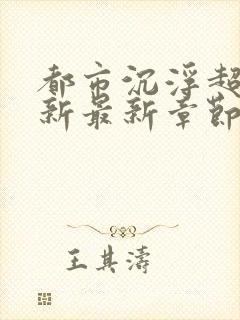 都市沉浮超
新最新章節
王其濤